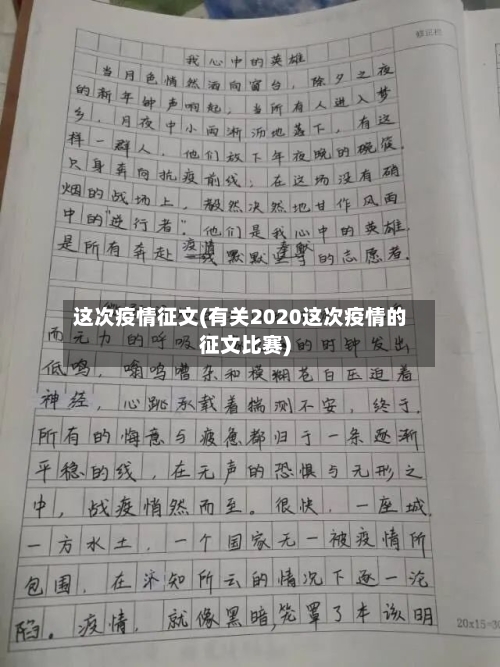 修记栏
我心中的英雄
当月色悄然洒向窗台，除夕之夜
的新年钟声响起，当所有人进入梦
乡，月夜中小雨淅沥地落下，有这
样一群人，他们放下年夜晚的碗筷，
只身奔向抗疫前线；在这场没有硝
烟的战场上，毅然决然地甘作风雨
中的“逆行者”。他们是我心中的英雄，
疫情 奉献
是所有奔走一线默默坚守的志愿者。
这次疫情征文(有关2020这次疫情的
征文比赛)
而无力的呼吸 的时钟发出
低鸣，嗡鸣嘈杂和模糊苍白压迫着
神经，心跳承载着揣测不安，终于，
所有的悔意与疲惫都归于一条逐渐
平稳的线，在无声的恐惧与无形之
中，战疫悄然而至。很快，一座城，
一方水土，一个国家无一被疫情所
包围，在不知所云的情况下逐一沦
陷。疫情，就像黑暗，笼罩了本该明
20x15=30